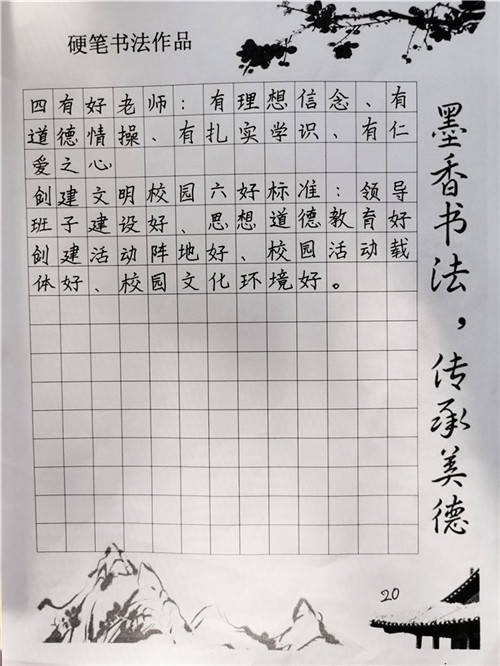 硬笔书法作品
四有好老师：有理想信念、有
道德情操、有扎实学识、有仁
爱之心
创建文明校园六好标准：领导
班子建设好、思想道德教育好
创建活动阵地好、校园活动载
体好、校园文化环境好。
墨香书法，传承美德
20